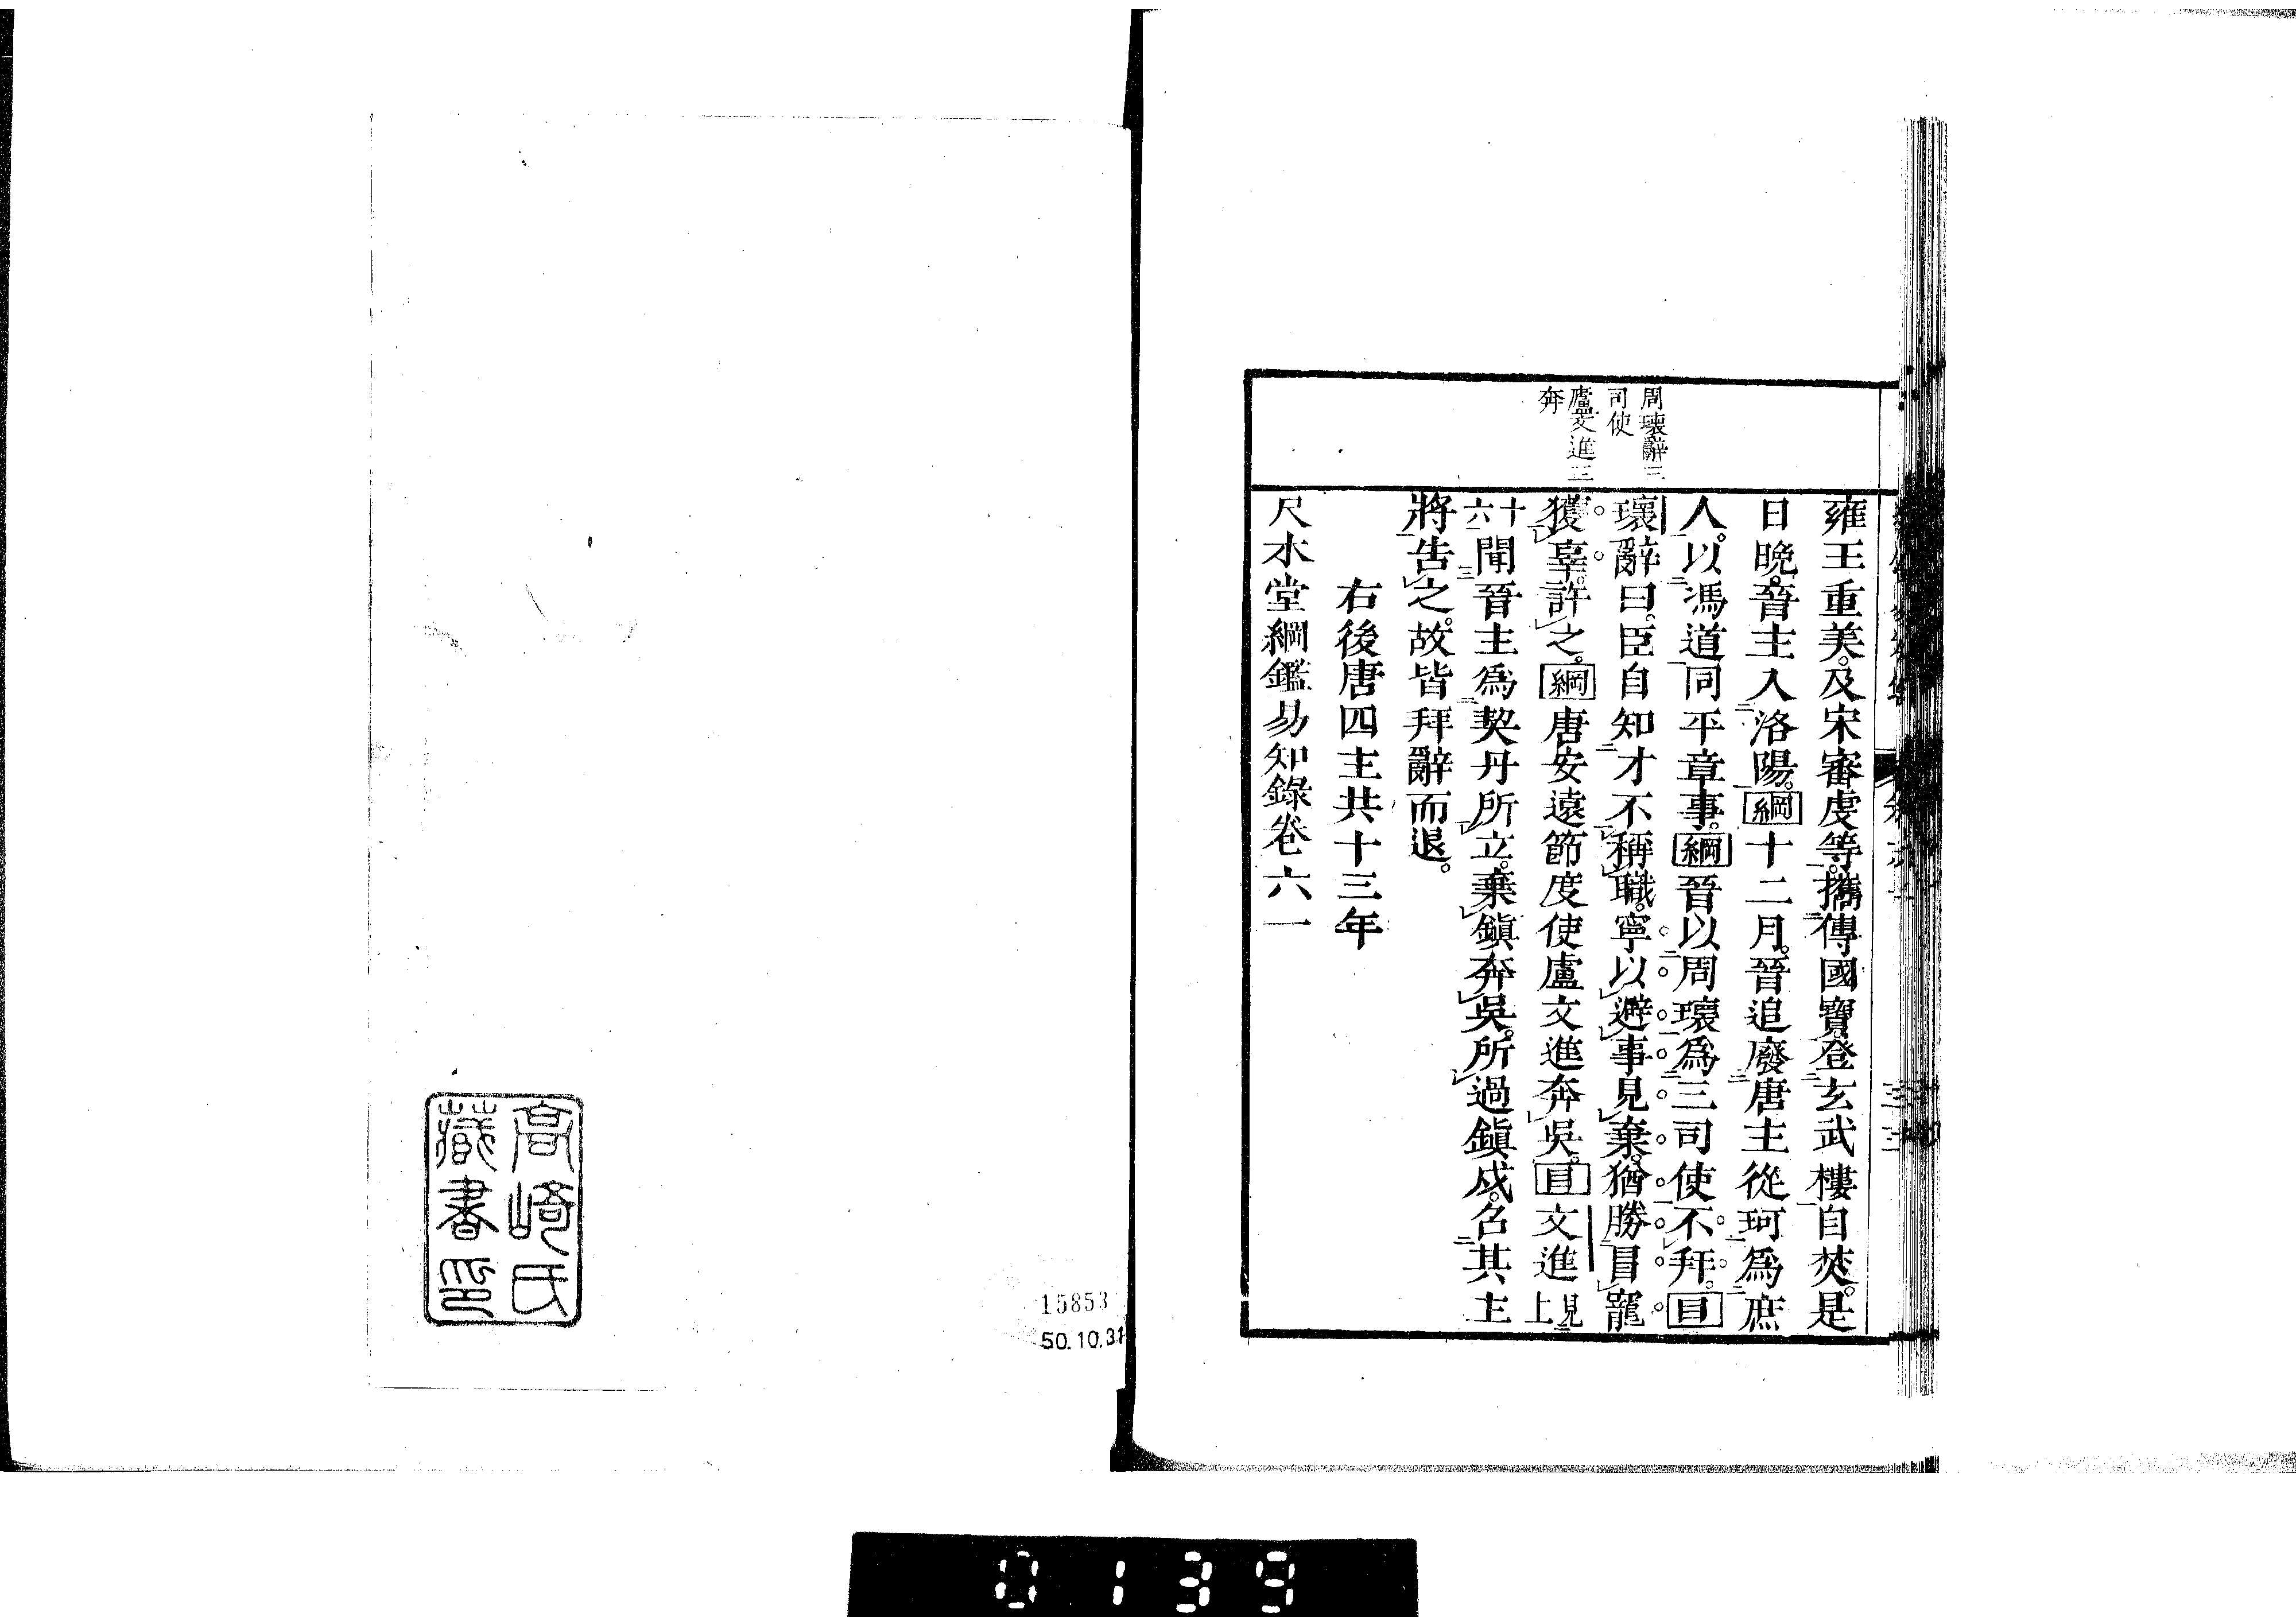 周瓌辭三
司使
盧文進三
奔
雍王重美。及宋審虔等。攜傳國寶。登玄武樓自焚。是
日晚。晉主入洛陽。綱十二月。晉追廢唐主從珂爲庶
人。以馮道同平章事。綱晉以周瓌爲三司使。不拜。目
瓌辭曰。臣自知才不稱職。寧以避事見棄。猶勝冒寵
獲辜。許之。綱唐安遠節度使盧文進奔吳。目文進見上
十六聞晉主爲契丹所立。棄鎭奔吳。所過鎭戍。召其主
將告之。故皆拜辭而退。
右後唐四主共十三年
尺木堂綱鑑易知錄卷六一
高崎氏
藏書印
15853
50.10.31
0139